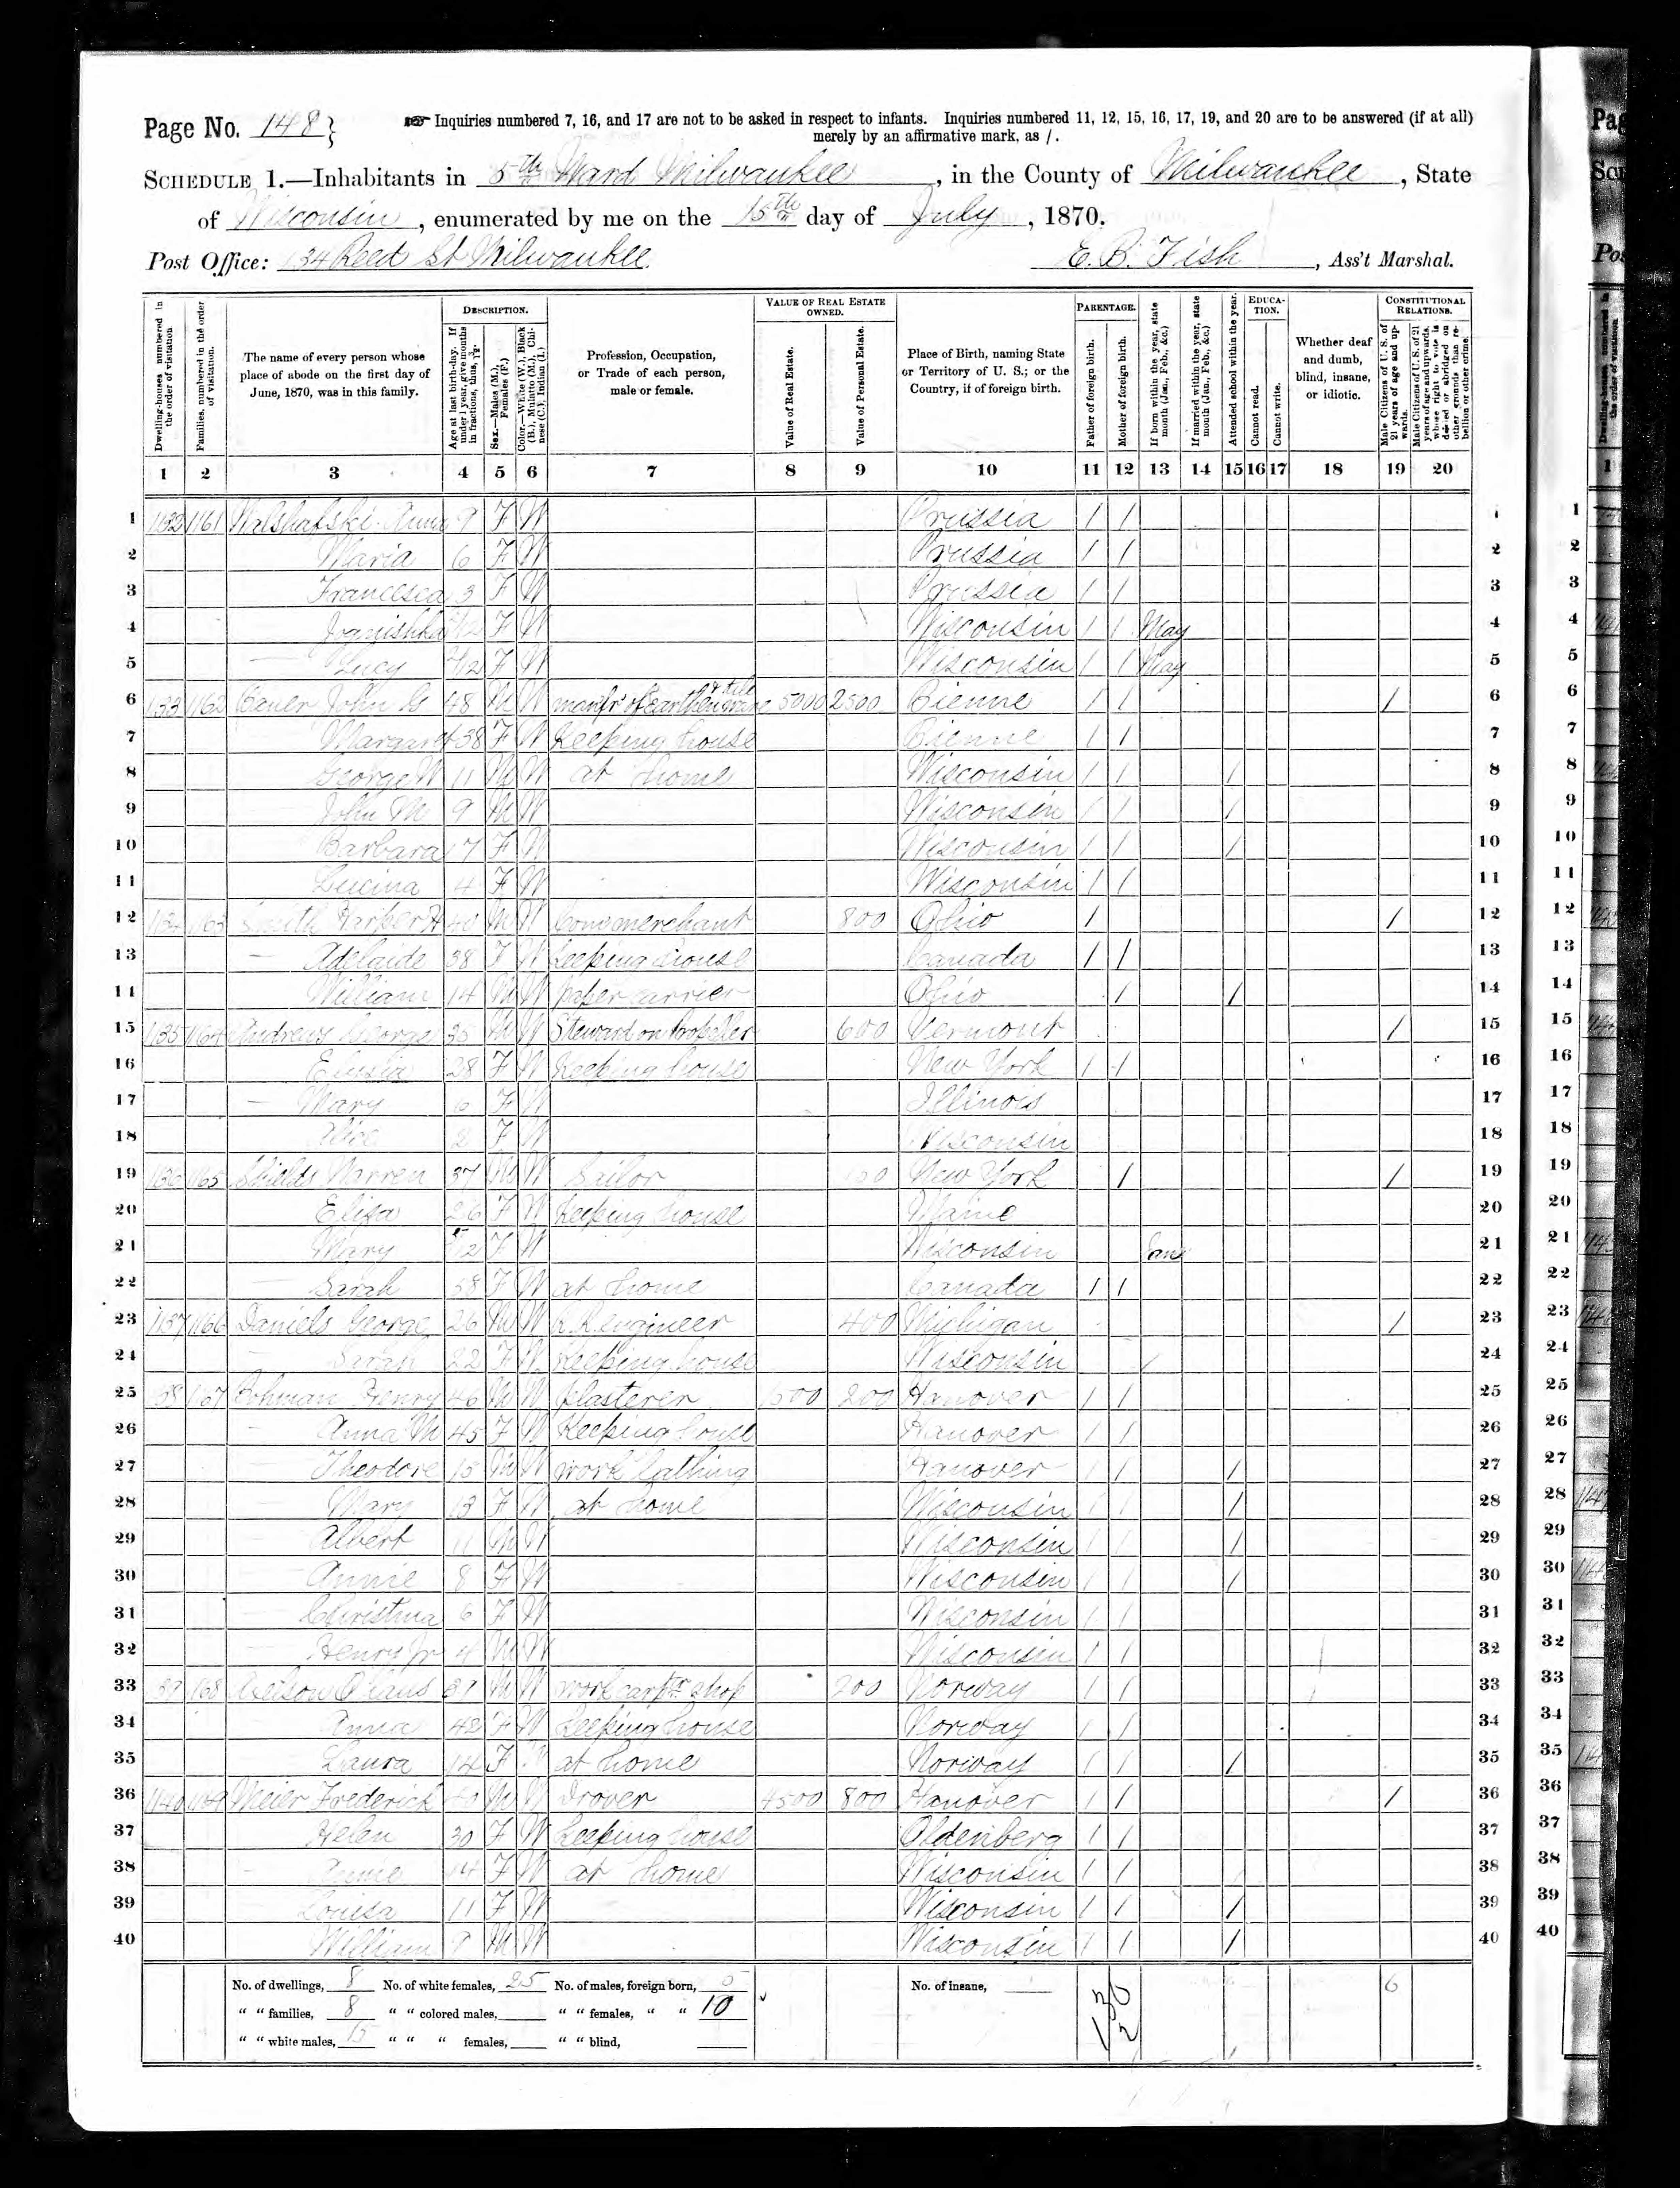 Page No. 148}
Inquiries numbered 7, 16, and 17 are not to be asked in respect to infants. Inquiries numbered 11, 12, 15, 16, 17, 19, and 20 are to be answered (if at all)
merely by an affirmative mark, as /.
SCHEDULE 1.—Inhabitants in 5th Ward Milwaukee, in the County of Milwaukee, State
of Wisconsin, enumerated by me on the 15th day of July, 1870.
Post Office: 134 Reed St Milwaukee
E. B. Fish, Ass't Marshal.
Dwelling-houses numbered in the order of visitation
Families, numbered in the order of visitation.
The name of every person whose place of abode on the first day of June, 1870, was in this family.
DESCRIPTION.
Age at last birth-day. If under 1 year, give months in fractions, thus, 3/12.
Sex.—Males (M.), Females (F.)
Color.—White (W.), Black (B.), Mulatto (M.), Chinese (C.), Indian (I.)
Profession, Occupation, or Trade of each person, male or female.
VALUE OF REAL ESTATE OWNED.
Value of Real Estate.
Value of Personal Estate.
Place of Birth, naming State or Territory of U. S.; or the Country, if of foreign birth.
PARENTAGE.
Father of foreign birth.
Mother of foreign birth.
If born within the year, state month (Jan., Feb., &c.)
If married within the year, state month (Jan., Feb., &c.)
Attended school within the year.
EDUCATION.
Cannot read.
Cannot write.
Whether deaf and dumb, blind, insane, or idiotic.
CONSTITUTIONAL RELATIONS.
Male Citizens of U. S. of 21 years of age and upwards.
Male Citizens of U. S. of 21 years of age and upwards, whose right to vote is denied or abridged on other grounds than rebellion or other crime.
1 2 3 4 5 6 7 8 9 10 11 12 13 14 15 16 17 18 19 20
1 1132 1161 Anna 9 F W Prussia / / 1
2 Maria 6 F W Prussia / / 2
3 Francesca 3 F W Prussia / / 3
4 F W Wisconsin / / May 4
5 — Lucy 2/12 F W Wisconsin / / May 5
6 1133 1162 John G 48 M W manfr of earthenware & tile 5000 2500 / / / 6
7 Margaret 38 F W Keeping house / / 7
8 George W 11 M W at home Wisconsin / / / 8
9 John M 9 M W Wisconsin / / / 9
10 Barbara 7 F W Wisconsin / / / 10
11 Lucina 4 F W Wisconsin / / 11
12 1134 1163 Smith Harper H 40 M W Com merchant 800 Ohio / / 12
13 — Adelaide 38 F W Keeping house Canada / / 13
14 William 14 M W paper carrier Ohio / / 14
15 1135 1164 Andrews George 35 M W Steward on Propeller 600 Vermont / 15
16 28 F W Keeping house New York / / 16
17 — Mary 6 F W Illinois 17
18 Alice 2 F W Wisconsin 18
19 1136 1165 Shields Warren 37 M W Sailor 100 New York / / 19
20 Eliza 26 F W Keeping house Maine 20
21 Mary 5/12 F W Wisconsin Jan 21
22 Sarah 58 F W at home Canada / / 22
23 1137 1166 Daniels George 26 M W R.R. engineer 400 Michigan / 23
24 Sarah 22 F W Keeping house Wisconsin 24
25 1138 1167 Bohman Henry 46 M W plasterer 1500 200 Hanover / / 25
26 — Anna M 45 F W Keeping house Hanover / / 26
27 Theodore 15 M W work lathing Hanover / / / 27
28 Mary 13 F W at home Wisconsin / / / 28
29 Albert 11 M W Wisconsin / / / 29
30 Annie 8 F W Wisconsin / / / 30
31 Christina 6 F W Wisconsin / / 31
32 Henry Jr 4 M W Wisconsin / / 32
33 1139 1168 Nelson Olaus 39 M W work carptr shop 200 Norway / / 33
34 Anna 42 F W Keeping house Norway / / 34
35 Laura 14 F W at home Norway / / / 35
36 1140 1169 Meier Frederick 40 M W Drover 4500 800 Hanover / / / 36
37 Helen 30 F W Keeping house Oldenberg / / 37
38 — Annie 14 F W at home Wisconsin / / 38
39 Louisa 11 F W Wisconsin / / / 39
40 William 9 M W Wisconsin / / / 40
No. of dwellings, 8 No. of white females, 25 No. of males, foreign born, 5 No. of insane, 6
" " families, 8 " " colored males, " " females, " " 10
" " white males, 15 " " " females, " " blind,